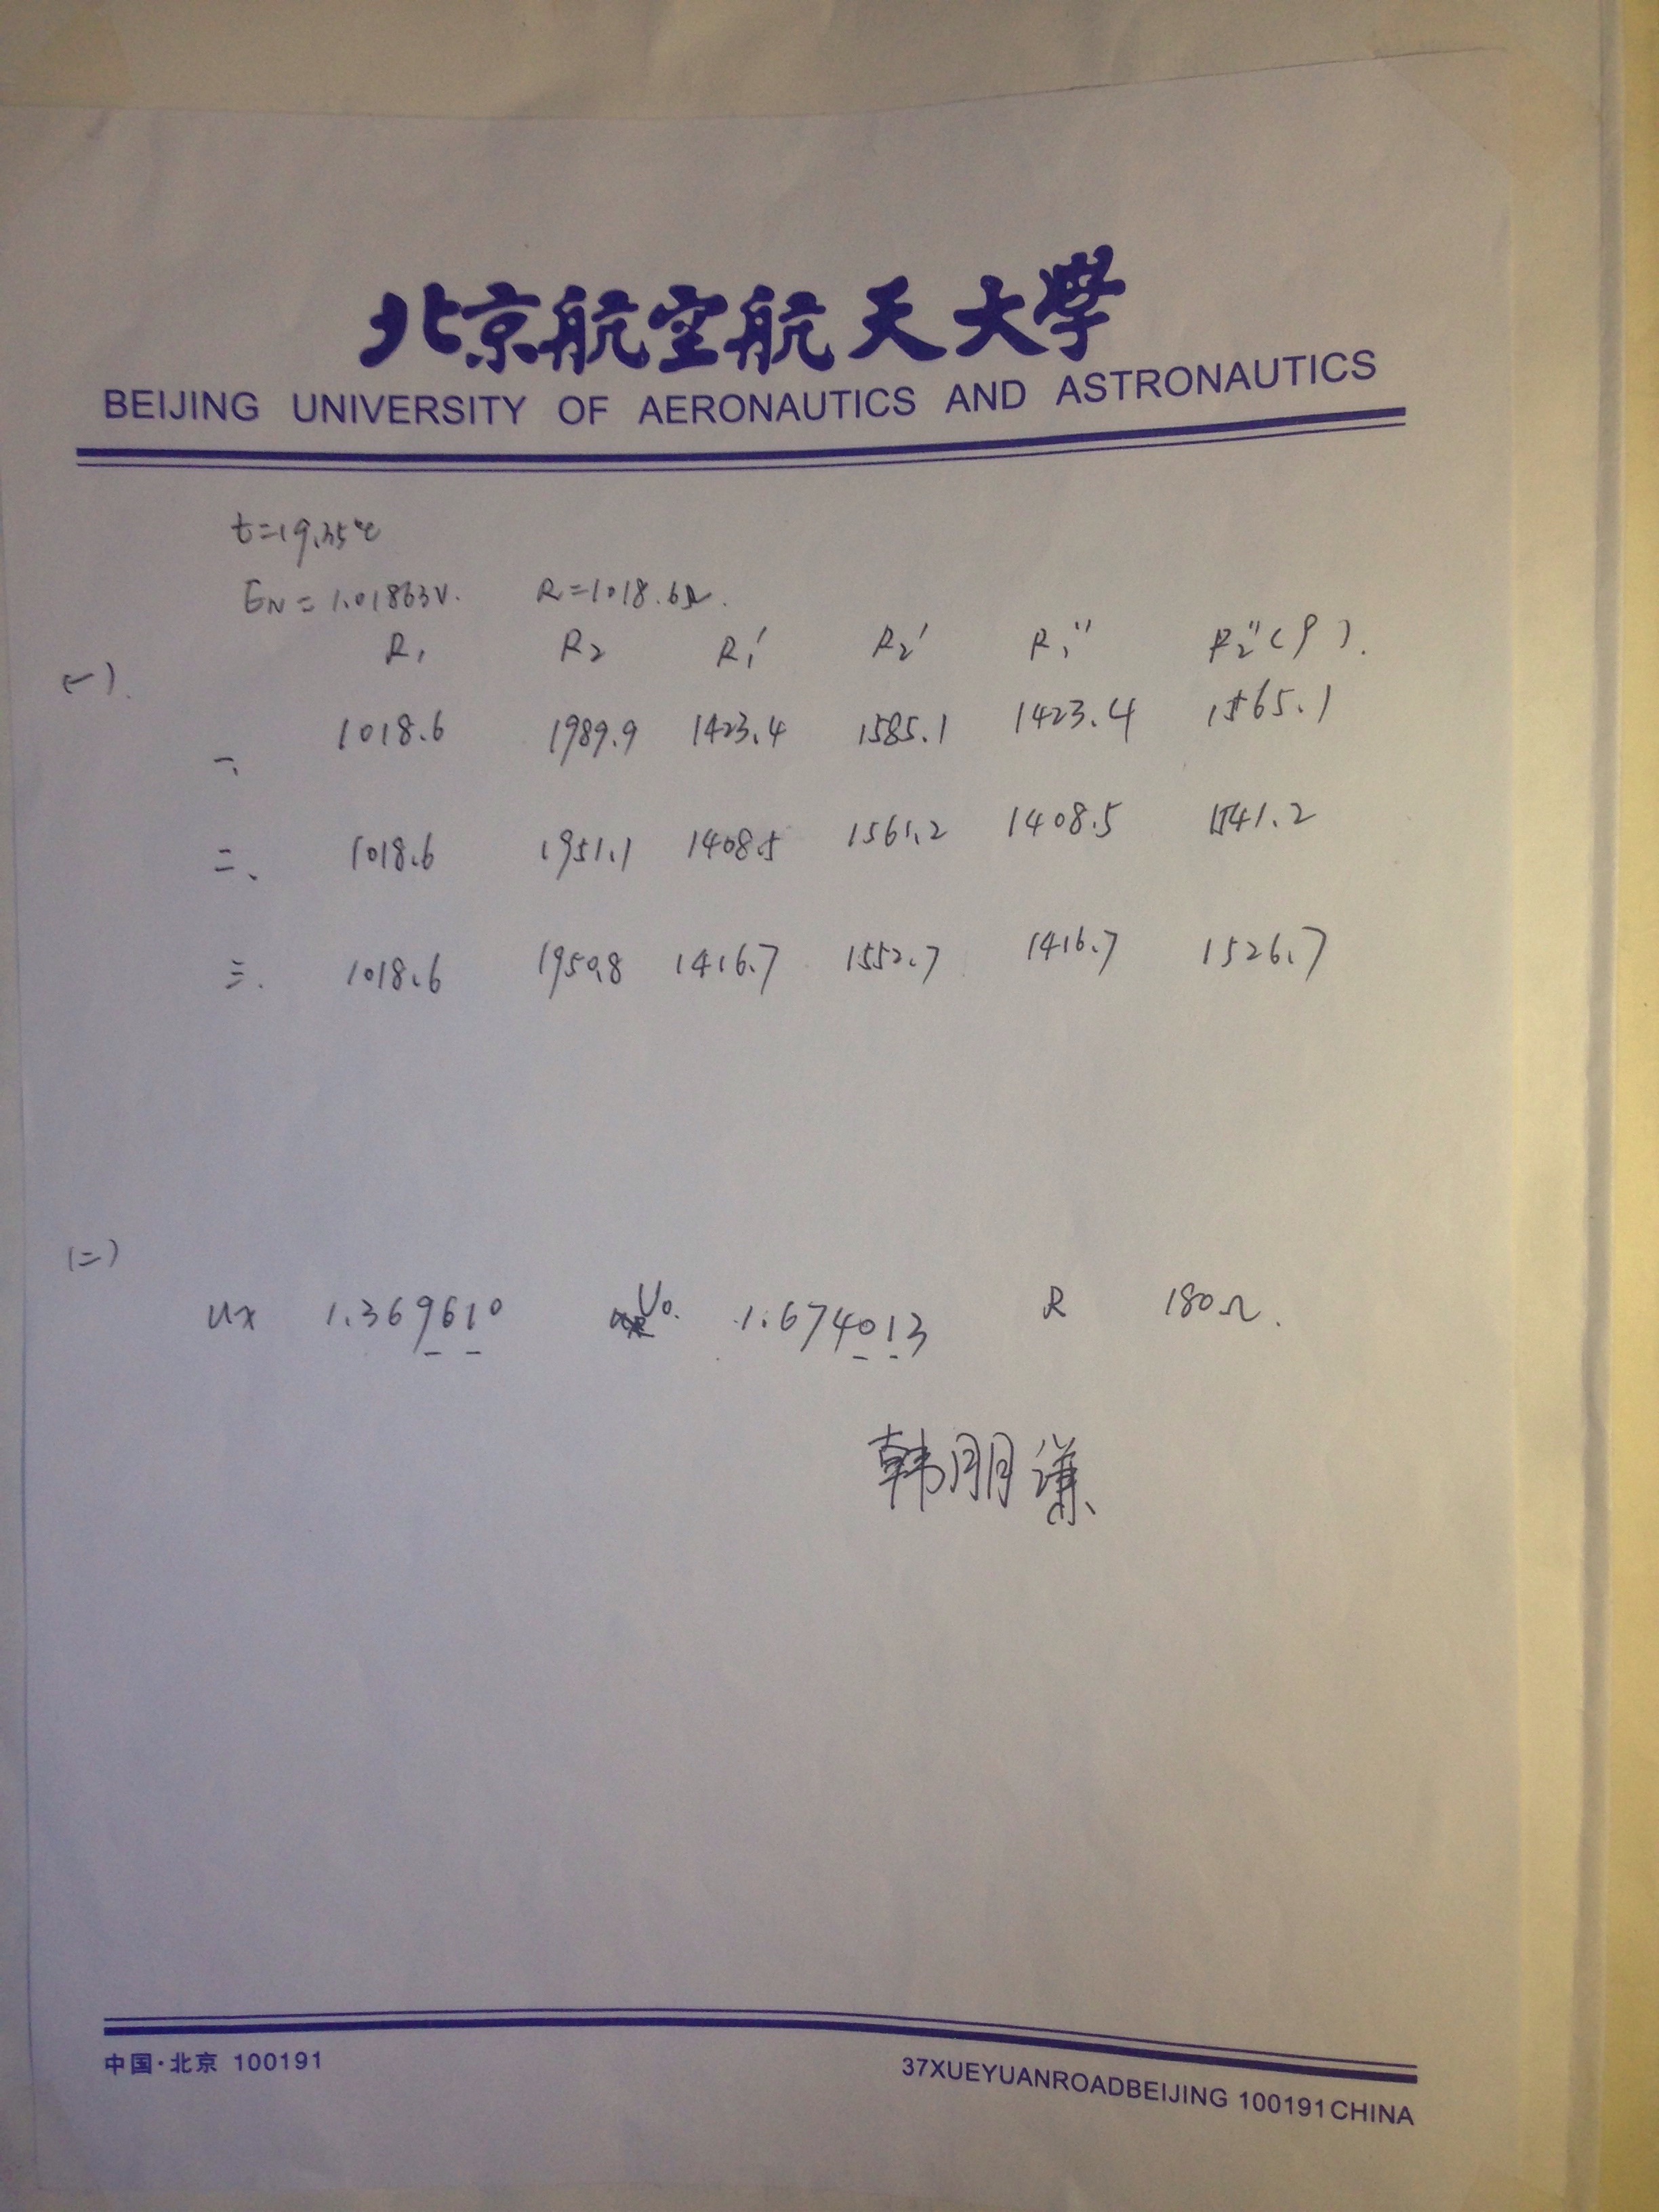 北京航空航天大學
BEIJING UNIVERSITY OF AERONAUTICS AND ASTRONAUTICS
t=19.35℃
EN=1.01863V. R=1018.6Ω.
(一). R₁ R₂ R₁′ R₂′ R₁″ R₂″(P).
一、 1018.6 1989.9 1423.4 1585.1 1423.4 1565.1
二、 1018.6 1951.1 1408.5 1561.2 1408.5 1541.2
三. 1018.6 1950.8 1416.7 1552.7 1416.7 1526.7
(二)
Ux 1.369610 U₀. 1.674013 R 180Ω.
韩朋谦
中国·北京 100191
37XUEYUANROADBEIJING 100191CHINA